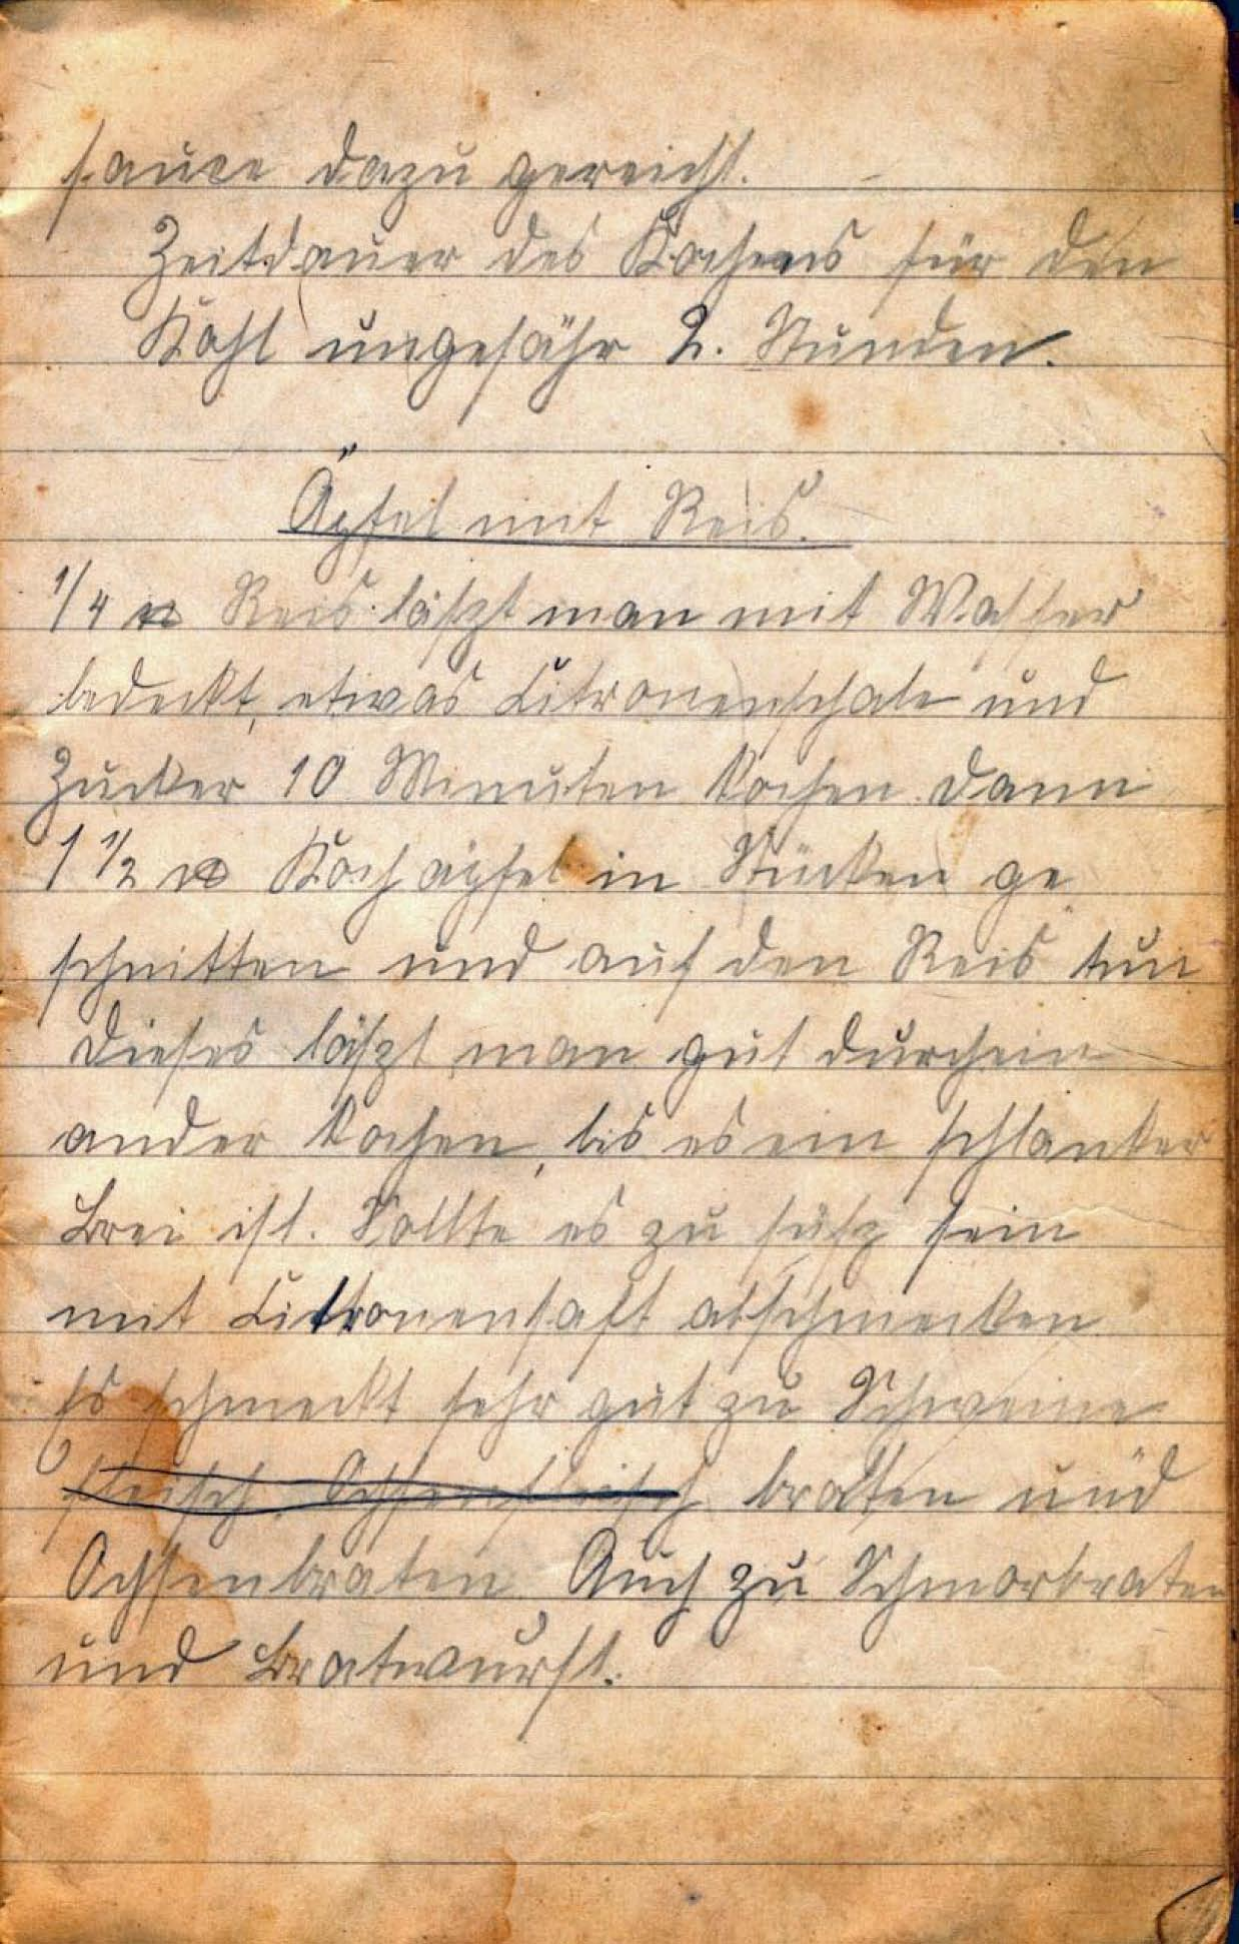 sauce dazu gereicht.
Zeitdauer des Kochens für den
Kohl ungefähr 2. Stunden.
Äpfel mit Reis.
1/4 ℔ Reis läßt man mit Wasser
bedeckt, etwas Citronenschale und
Zucker 10 Minuten kochen dann
1 1/2 ℔ Kochäpfel in Stücken ge
schnitten und auf den Reis tun
Dieses läßt man gut durchein
ander kochen, bis es ein schlanker
Brei ist. Sollte es zu süß sein
mit Citronensaft abschmecken
Es schmeckt sehr gut zu Schweine
fleisch Ochsenfleisch braten und
Ochsenbraten Auch zu Schmorbraten
und Bratwurst.